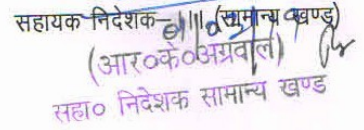 सहायक निदेशक- (सामान्य खण्ड)
(आर०के०अग्रवाल)
सहा० निदेशक सामान्य खण्ड